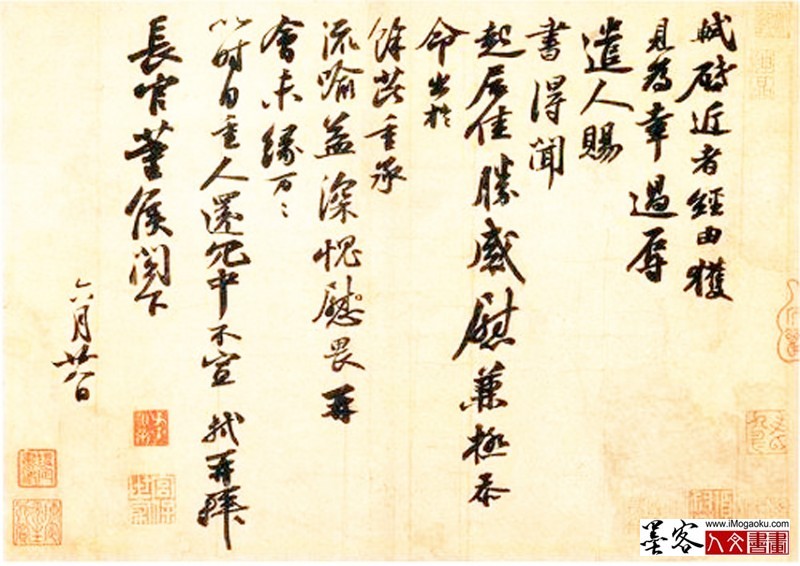 軾啟近者經由獲
見為幸過辱
遣人賜
書得聞
起居佳勝感慰兼極忝
命出於
餘芘重承
流喻益深愧慰畏再
會未緣万〻
以时自重人還冗中不宣 軾再拜
長官董侯閣下
六月廿八日
墨客
www.iMogaoku.com
人文書畫